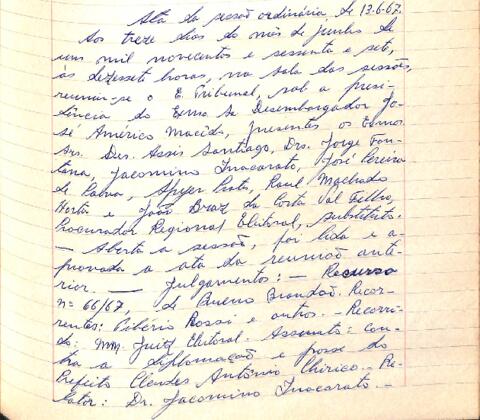 Ata da sessão ordinária, de 13.6.67.
Aos treze dias do mês de junho de
um mil novecentos e sessenta e sete,
às dezessete horas, na sala das sessões,
reuniu-se o E. Tribunal, sob a presi-
dência do Exmo. Sr. Desembargador Jo-
sé Américo Macêdo, presentes os Exmos.
Srs. Des. Assis Santiago, Drs. Jorge Fon-
tana, Jacomino Inacarato, José Pereira
de Paiva, Pinto, Raul Machado
Horta e João Braz da Costa Val Filho,
Procurador Regional Eleitoral, substituto.
— Aberta a sessão, foi lida e a-
provada a ata da reunião ante-
rior. — Julgamentos: — Recurso
nº 66/67, de Bueno Brandão. Recor-
rentes: Libério Rossi e outros. — Recorri-
do: MM. Juiz Eleitoral. Assunto: con-
tra a diplomação e posse do
Prefeito Antônio Chirico. — Re-
lator: Dr. Jacomino Inacarato. —